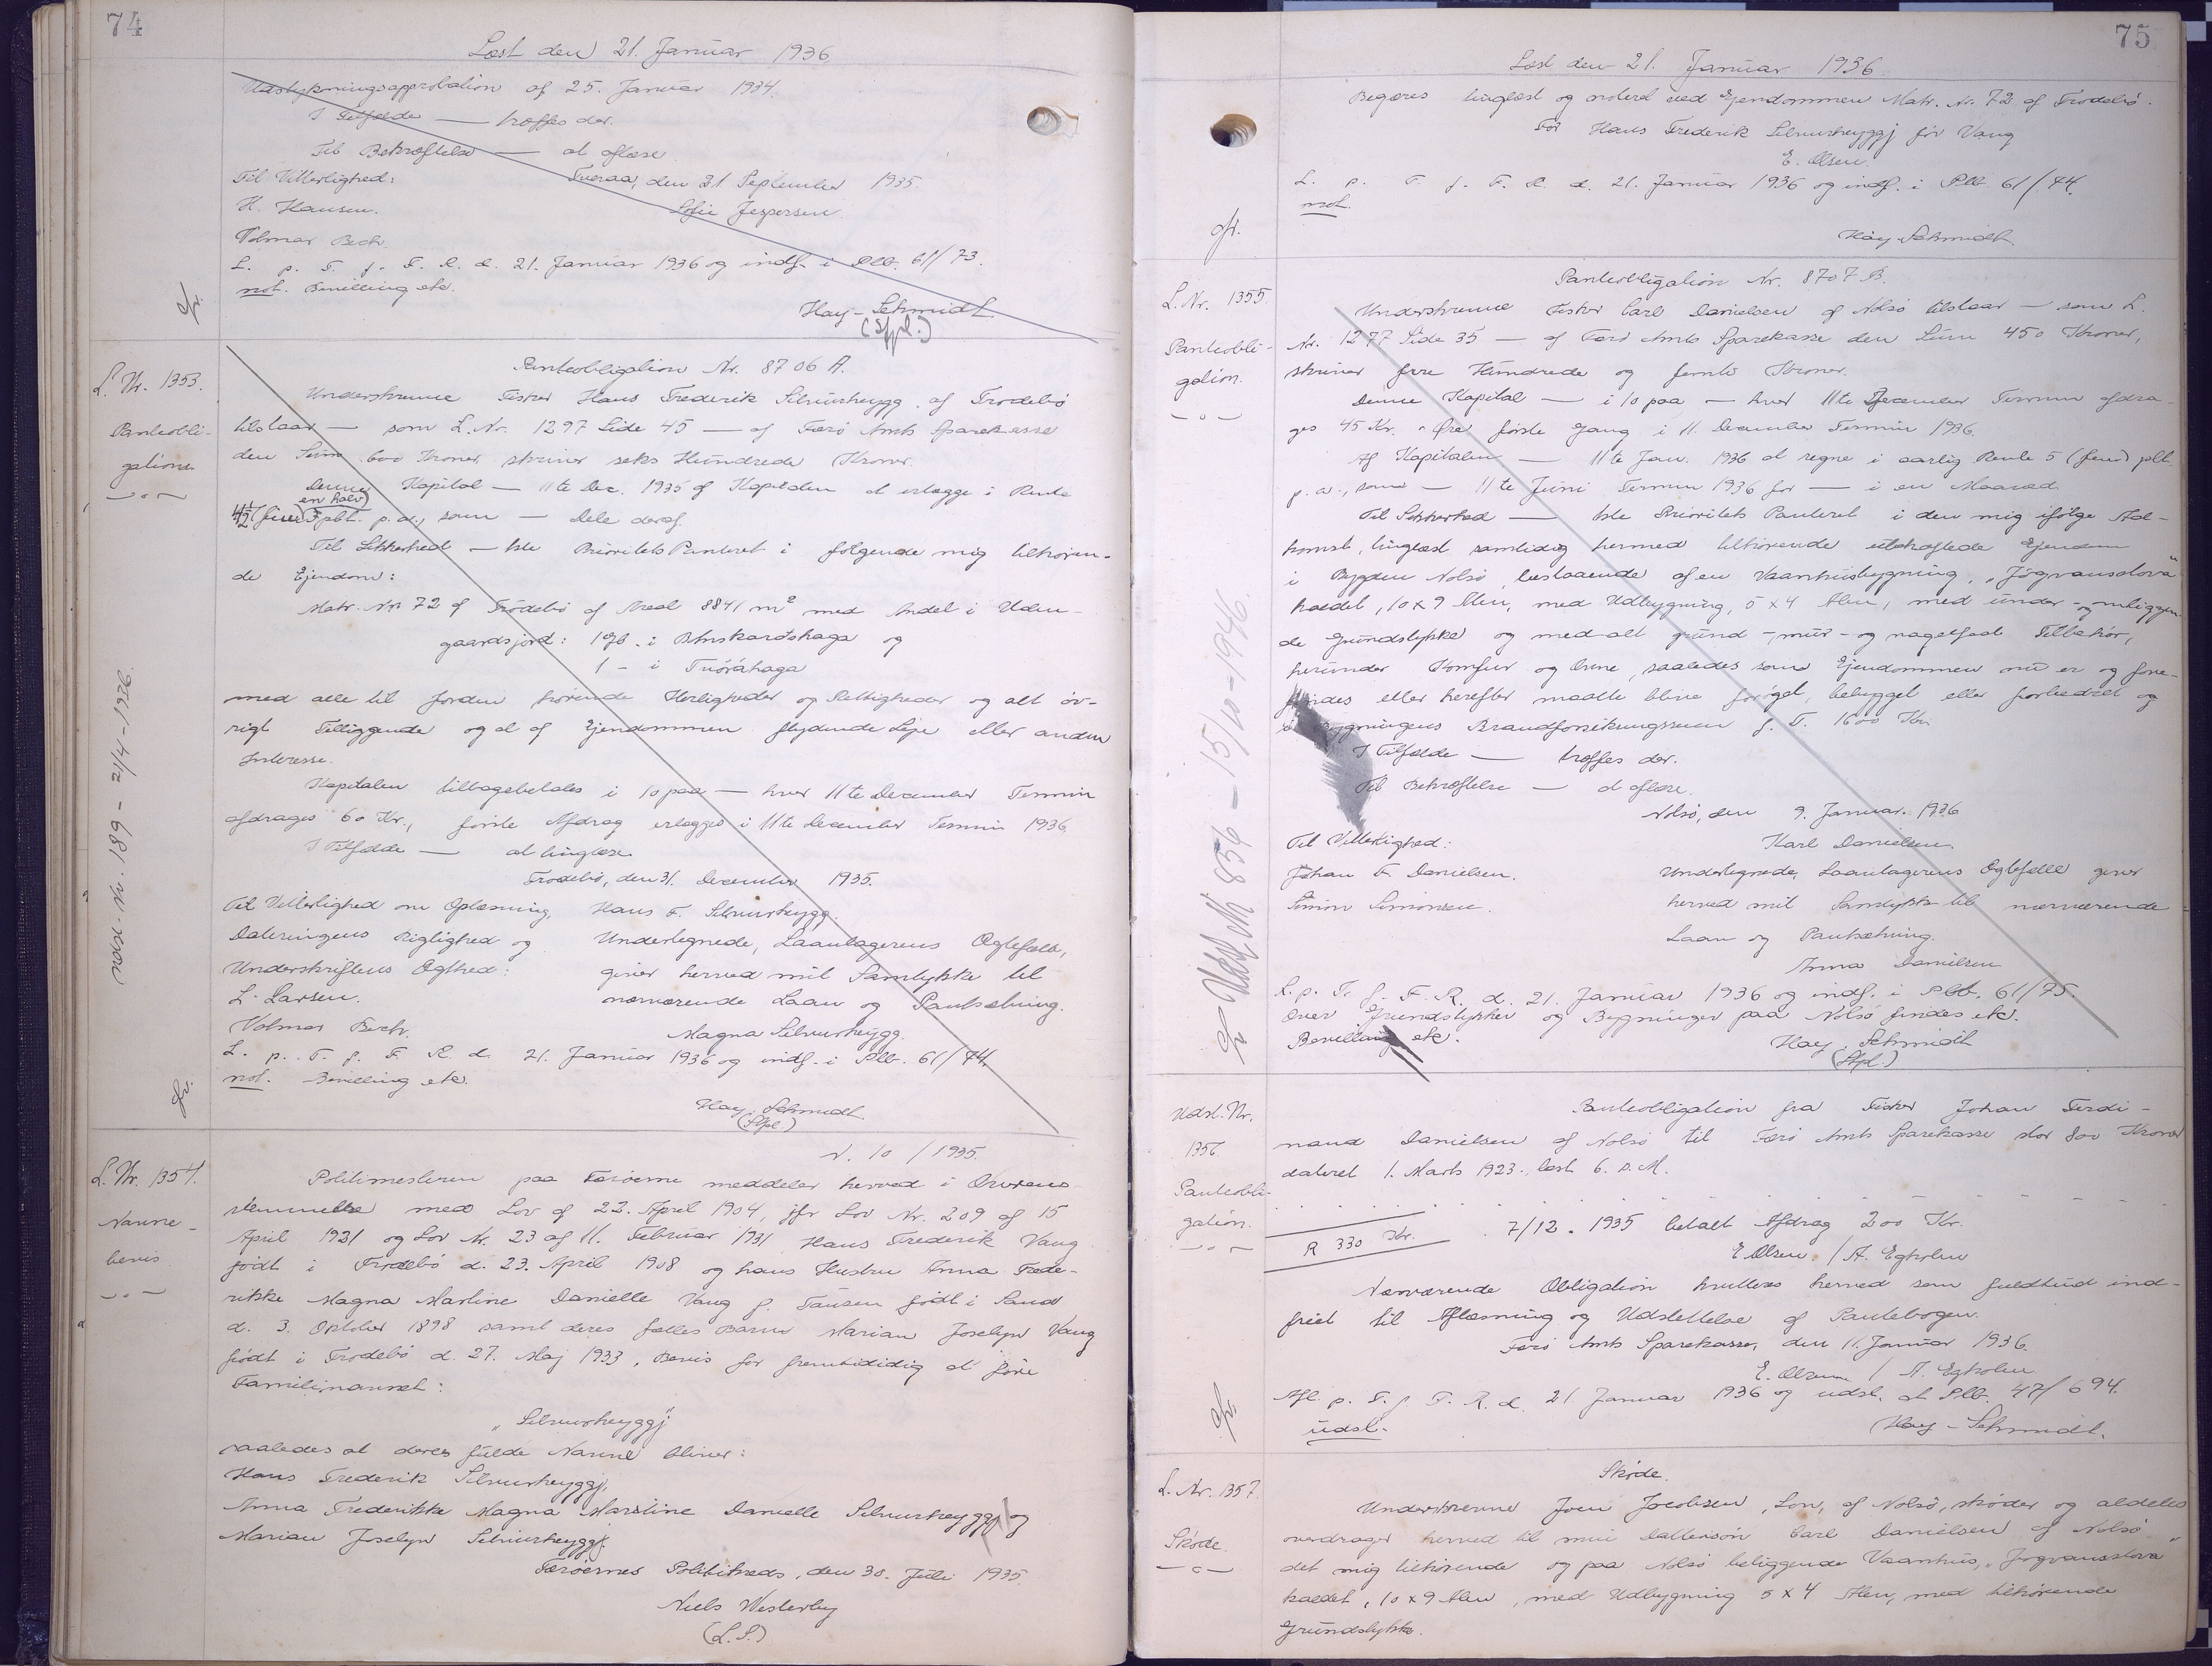 74
Læst den 21. Januar 1936
Udstykningsapprobation af 25. Januar 1934.
I Tilfælde — træffes der.
Til Bekræftelse — at aflæse
Til Vitterlighed: Tveraa, den 21 September 1935.
H. Hansen. Sofie Jespersen.
Volmar Bech.
L. p. T. f. F. R. d. 21. Januar 1936 og indf. i Plb. 61/73.
not. Bevilling etc.
Hay-Schmidt
(Stpl.)
L. Nr. 1353.
Panteobli-
gation
Panteobligation Nr. 8706 A.
Underskrevne Fisker Hans Frederik Silvurheygg af Trodebø
tilstaar — som L. Nr. 1297 Side 45 — af Færø Amts Sparekasse
den Sum 600 Kroner, skriver seks Hundrede Kroner.
Denne Kapital — 11te Dec. 1935 af Kapitalen at erlægge i Rente
en halv)
4½ (fire pCt. p. a., som — Dele deraf.
Til Sikkerhed — 1ste Prioritets Panteret i følgende mig tilhøren-
de Ejendom:
Matr. Nr. 72 af Trodebø af Areal 8841 m² med Andel i Uden-
gaardsjord: 1 gl. i Bluskarðshaga og
1 - i Tvøráhaga
med alle til Jorden hørende Herligheder og Rettigheder og alt øv-
rigt Tilliggende og al af Ejendommen flydende Leje eller anden
Interesse.
Kapitalen tilbagebetales i 10 paa — hver 11te December Termin
afdrages 60 Kr., første Afdrag erlægges i 11te December Termin 1936
I Tilfælde — at tinglæse
Trodebø, den 31. December 1935.
Til Vitterlighed om Oplæsning, Hans F. Silvurheygg.
Dateringens Rigtighed og Undertegnede, Laantagerens Ægtefælle,
Underskriftens Ægthed: giver herved mit Samtykke til
L. Larsen. nærværende Laan og Pantsætning.
Volmar Bech. Magna Silvurheygg.
L. p. T. f. F. R. d. 21. Januar 1936 og indf. i Plb. 61/74.
not. Bevilling etc.
Hay-Schmidt
(Stpl.)
Udsl. Nr. 189 - 21/4-1936.
L. Nr. 1354.
Navne-
bevis
N. 10 / 1935.
Politimesteren paa Færøerne meddeler herved i Overens
stemmelse med Lov af 22. April 1904, jfr Lov Nr. 209 af 15
April 1921 og Lov Nr. 23 af 11. Februar 1931 Hans Frederik Vang
født i Trodebø d. 23. April 1908 og hans Hustru Anna Frede-
rikke Magna Martine Danielle Vang f. Tausen født i Sand
d. 3. Oktober 1898 samt deres fælles Barn Marian Joselyn Vang
født i Trodebø d. 27. Maj 1933, Bevis for fremtididig at føre
Familienavnet:
"Silvurheyggj"
saaledes at deres fulde Navne bliver:
Hans Frederik Silvurheyggj,
Anna Frederikke Magna Martine Danielle Silvurheyggj og
Marian Joselyn Silvurheyggj.
Færøernes Politikreds, den 30. Juli 1935.
Niels Westerby
(L. S.)
75
Læst den 21. Januar 1936.
Begæres tinglæst og noteret ved Ejendommen Matr. Nr. 72 af Trodebø.
For Hans Frederik Silvurheyggj før Vang
E. Olsen.
L. p. T. f. F. R. d. 21. Januar 1936 og indf. i Plb. 61/74.
not.
Hay-Schmidt.
L. Nr. 1355.
Panteobli-
gation.
Panteobligation Nr. 8707 B.
Underskrevne Fisker Carl Danielsen af Nolsø tilstaar — som L.
Nr. 1277 Side 35 — af Færø Amts Sparekasse den Sum 450 Kroner,
skriver fire Hundrede og femti Kroner.
Denne Kapital — i 10 paa — hver 11te December Termin afdra-
ges 45 Kr. " Øre første Gang i 11. December Termin 1936.
Af Kapitalen — 11te Jan. 1936 at regne i aarlig Rente 5 (fem) pCt.
p. a., som — 11te Juni Termin 1936 for — i en Maaned.
Til Sikkerhed — 1ste Prioritets Panteret i den mig ifølge Ad-
komst, tinglæst samtidig hermed tilhørende Ejendom
i Bygden Nolsø, bestaaende af en Vaanhusbygning, "Jógvansstova"
kaldet, 10 x 9 Alen, med Udbygning, 5 x 4 Alen, med under- og omliggen-
de Grundstykke og med alt grund-, mur- og nagelfast Tilbehør,
herunder Komfur og Ovne, saaledes som Ejendommen nu er og fore-
findes eller herefter maatte blive forøget, bebygget eller forbedret og
Bygningens Brandforsikringssum f. T. 1600 Kr.
I Tilfælde — træffes der.
Til Bekræftelse — at aflæse.
Nolsø, den 9. Januar 1936
Til Vitterlighed: Karl Danielsen.
Johan F. Danielsen. Undertegnede, Laantagerens Ægtefælle giver
Simon Simonsen. herved mit Samtykke til nærværende
Laan og Pantsætning.
Anna Danielsen
L. p. T. f. F. R. d. 21. Januar 1936 og indf. i Plb. 61/75.
Over Grundstykker og Bygninger paa Nolsø findes etc.
Bevilling etc.
Hay-Schmidt
(Stpl.)
Udsl. Nr. 834 - 15/10-1946.
Udsl. Nr.
1356
Panteobli-
gation.
Panteobligation fra Fisker Johan Ferdi-
nand Danielsen af Nolsø til Færø Amts Sparekasse stor 800 Kroner
dateret 1. Marts 1923. læst 6. s. M.
R 330 Kr. 7/12. 1935 betalt Afdrag 200 Kr.
E. Olsen / A. Egholm
Nærværende Obligation kvitteres herved som fuldtud ind-
friet til Aflæsning og Udslettelse af Pantebogen.
Færø Amts Sparekasse, den 11. Januar 1936.
E. Olsen / A. Egholm
Afl. p. T. f. F. R. d. 21. Januar 1936 og udsl. at Plb. 47/694.
udsl.
Hay-Schmidt.
L. Nr. 1357.
Skøde.
Skøde.
Underskrevne Joen Jacobsen, Søn, af Nolsø, skøder og aldeles
overdrager herved til min Dattersøn Carl Danielsen af Nolsø
det mig tilhørende og paa Nolsø beliggende Vaanhus, "Jógvansstova"
kaldet, 10 x 9 Alen, med Udbygning 5 x 4 Alen, med tilhørende
Grundstykke.